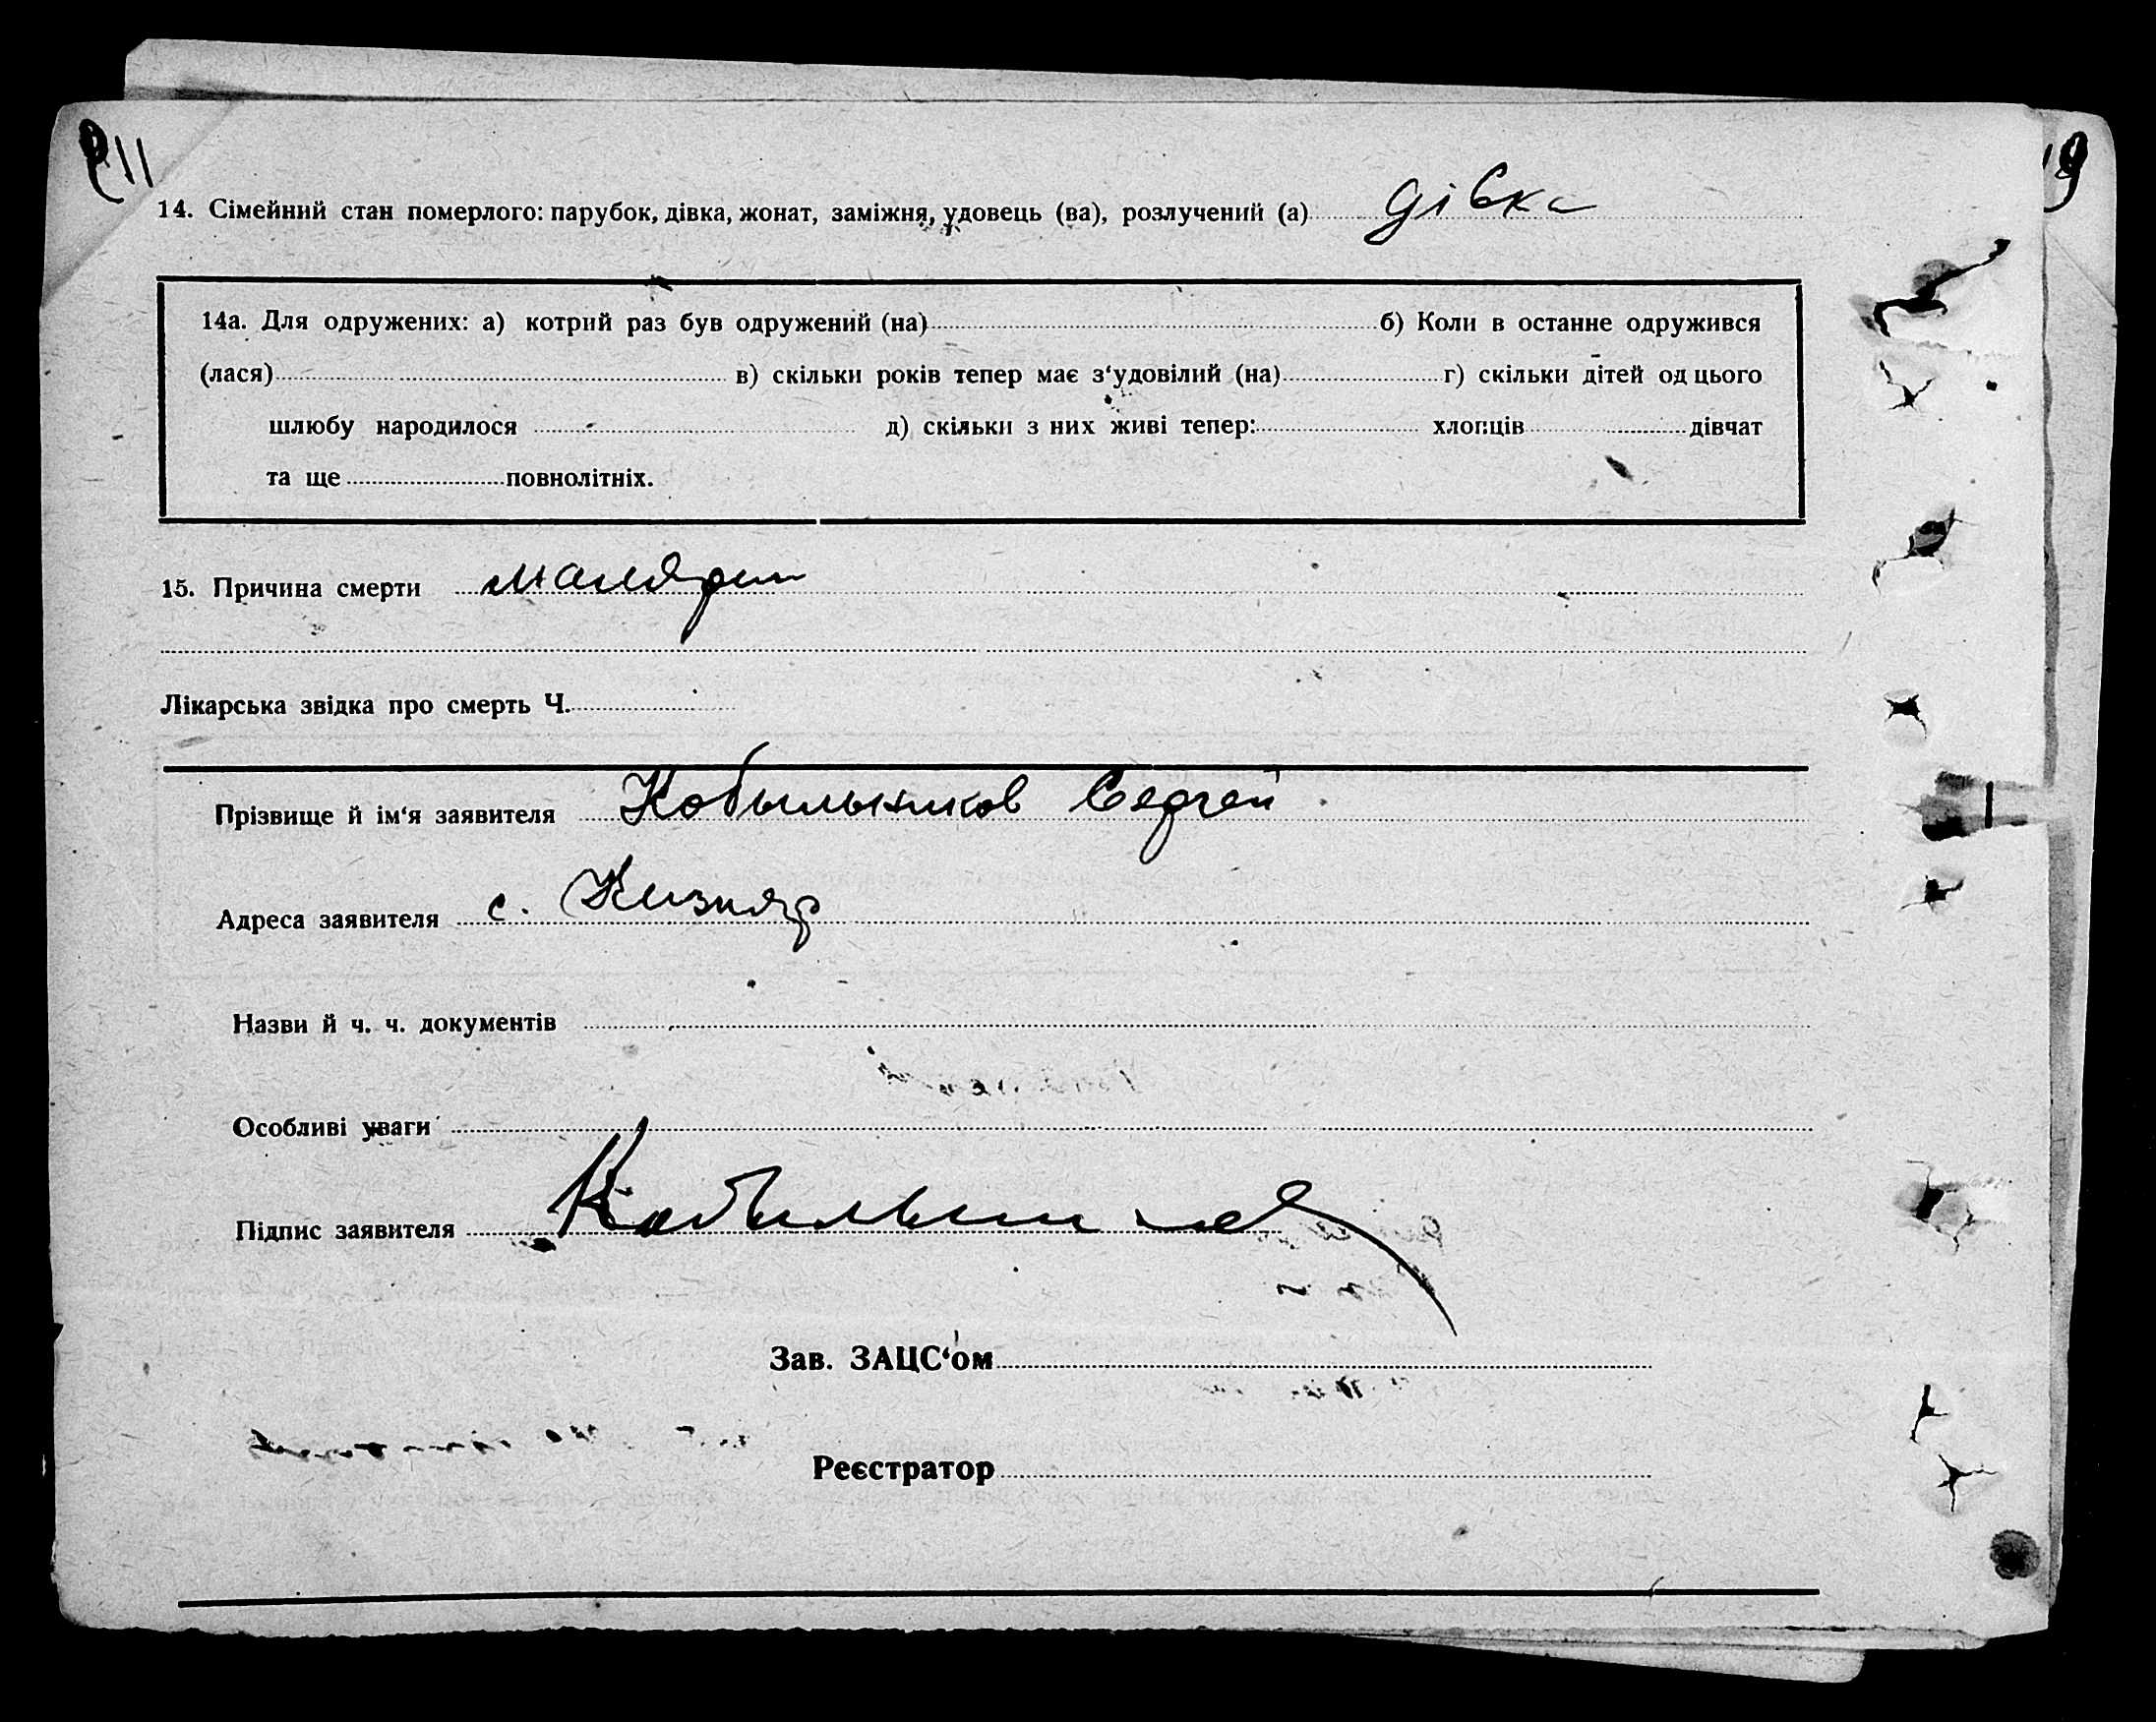 11
14. Сімейний стан померлого: парубок, дівка, жонат, заміжня, удовець (ва), розлучений (а) дівка
14а. Для одружених: а) котрий раз був одружений (на) б) Коли в останне одружився
(лася) в) скільки років тепер має з‘удовілий (на) г) скільки дітей од цього
шлюбу народилося д) скільки з них живі тепер: хлопців дівчат
та ще повнолітніх.
15. Причина смерти малярия
Лікарська звідка про смерть Ч.
Прізвище й ім‘я заявителя Кобыльников Сергей
Адреса заявителя с. Кизияр
Назви й ч. ч. документів
Особливі уваги
Підпис заявителя
Зав. ЗАЦС‘ом
Реєстратор